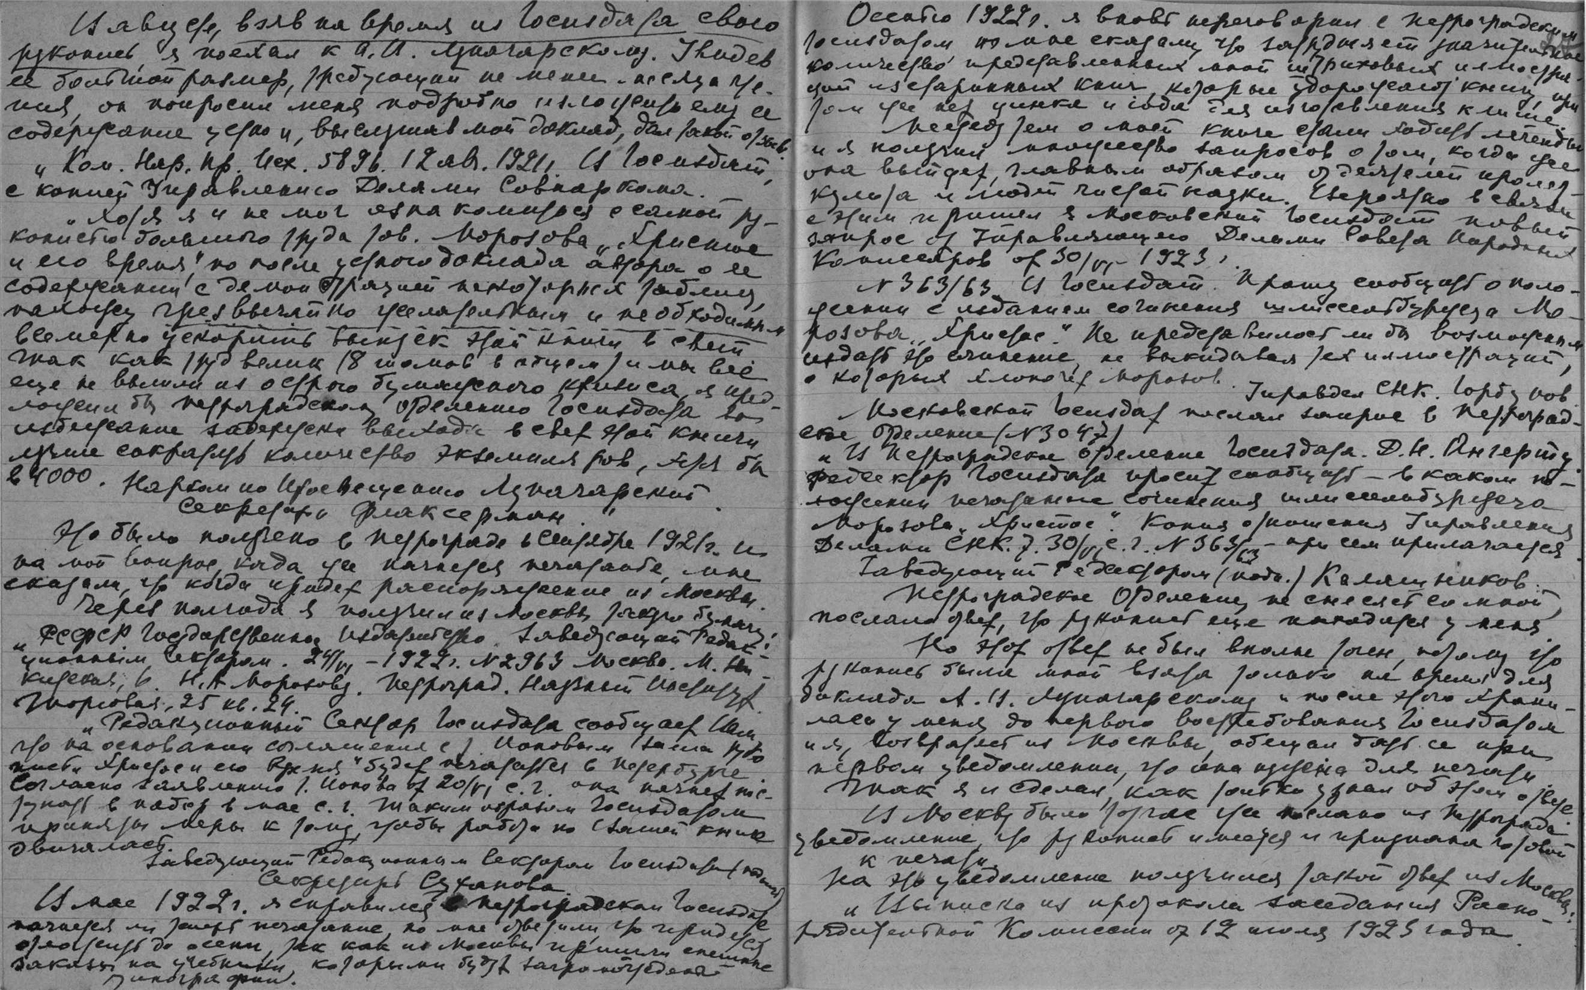 И август, взяв на время из Госиздата свою
рукопись я поехал к А. И. Луначарскому. Увидев
её большой размер, требующий не менее месяца чте-
ния, он попросил меня подробно изложить ему ее
содержание устно и, выслушав мой доклад, дал такой отзыв.
„Ком. Нар. Пр. Исх. 5896. 12 авг. 1921г. В Госиздат,
с копией Управлению Делами Совнаркома.
„Хотя я и не мог ознакомиться с самой ру-
кописью большого труда тов. Морозова „Христос
и его время", но после устного доклада автора о ее
содержании с демонстрацией некоторых таблиц,
нахожу чрезвычайно желательным и необходимым
всемерно ускорить выпуск этой книги в свет.
Так как труд велик (8 томов в общем) и мы всё
еще не вышли из острого бумажного кризиса, я пред-
ложил бы петроградскому отделению Госиздата во
избежание задержки выхода в свет этой книги
лучше сократить количество экземпляров, хотя бы
в 4000. Нарком по Просвещению Луначарский
Секретарь Флаксерман."
Это было получено в Петрограде в сентябре 1921г. и
на мой вопрос, когда же начнется печатанье, мне
сказали, что когда придет распоряжение из Москвы.
Через полгода я получил из Москвы такую бумагу:
„РСФСР Государственное Издательство. Заведующий Редак-
ционным Сектором. 24/VI – 1922г. N2963 Москва.
Н. А Морозову. Петроград. Научный Институт.
Торговая, 25 кв. 24.
„Редакционный Сектор Госиздата сообщает Вам,
что на основании соглашения с т. Ионовым Ваша руко
пись „Христос и его Время" будет печататься в Петербурге.
Согласно заявлению т. Ионова от 20/VI с. г. она начнет пос-
тупать в набор в мае с. г. Таким образом Госиздатом
приняты меры к тому, чтобы работа по Вашей книге
двигалась.
Заведующий Редакционным Сектором Госиздата
Секретарь Суханова.
В мае 1922г. я справился в петроградском Госиздате
начнется ли теперь печатание, но мне ответили что придется
отложить до осени, так как из Москвы пришли спешные
заказы на учебники, которыми будут загромождены
типографии.
Осенью 1922г. я вновь переговорил с петроградским
Госиздатом но мне сказали, что затрудняет значительное
количество представленных мной штриховых иллюстра-
ций из старинных книг, которые удорожают книгу, при
том же нет цинка и иода для изготовления клише.
Между тем о моей книге стали ходить легенды
и я получил множество запросов о том, когда же
она выйдет, главным образом от деятелей проле-
культа и людей чистой науки. Вероятно в связи
с этим и пришел в Московский Госиздат новый
запрос от Управляющего Делами Совета Народных
Комиссаров от 30/VI – 1923г.
N 363/63 В Госиздат. Прошу сообщить о поло-
жении с изданием сочинения шлиссельбуржца Мо-
розова „Христос". Не представилось ли бы возможным
издать это сочинение, не выкидывая тех иллюстраций,
о которых хлопочет Морозов. Управдел СНК. Горбунов.
Московский Госиздат послал запрос в Петроград-
ское отделение (N3047)
„В Петроградское отделение Госиздата. Д. Н. Ангерту.
Редсектор Госиздата просит сообщить – в каком по-
ложении печатание сочинения шлиссельбуржца
Морозова „Христос". Копия отношения Управления
Делами СНК. от 30/VI с. г. N 363/63 – при сем прилагается
Заведующий Редсектором (подп.) Калашников.
Петроградское Отделение, не снесясь со мной,
послало ответ, что рукопись еще находится у меня
Но этот ответ не был вполне точен, потому что
рукопись была мной взята только на время для
доклада А. В. Луначарскому и после этого храни-
лась у меня до первого востребования Госиздатом
и я, возвратясь из Москвы, обещал дать ее при
первом уведомлении, что она нужна для печати
Так я и сделал, как только узнал об этом ответе.
В Москву было тотчас же послано из Петрограда
уведомление, что рукопись имеется и признана готовой
к печати.
На это уведомление получился такой ответ из Москвы:
„Выписка из протокола заседания Распо-
рядительной Комиссии от 12 июля 1923 года.